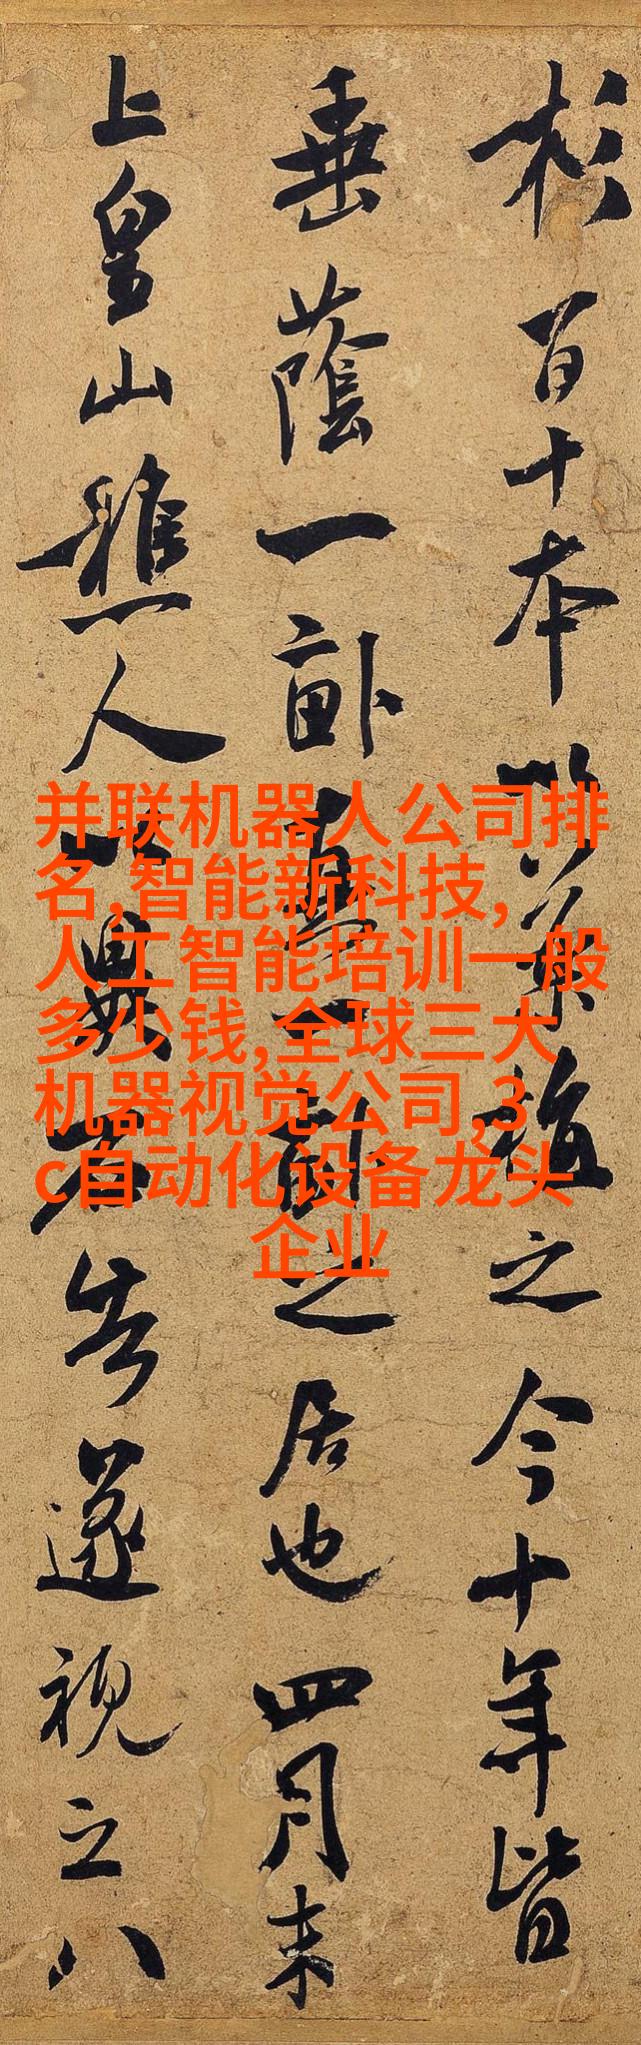 杉百十本以之今十年皆
垂蔭一畝真一畝之居也四月末
上皇山樵人以異石告遂視之八
并联机器人公司排
名,智能新科技,
人工智能培训一般
多少钱,全球三大
机器视觉公司,3
c自动化设备龙头
企业